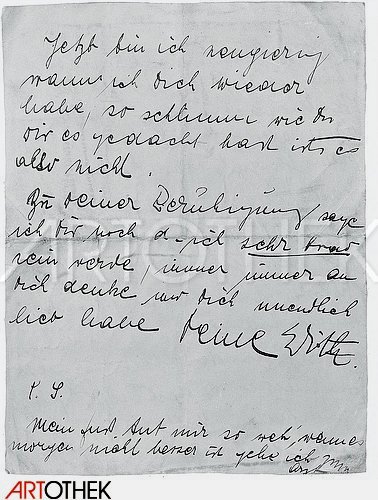 Jetzt bin ich neugierig
wann ich Dich wieder
habe, so schlimm wie Du
Dir es gedacht hast ist es
also nicht.
Zu Deiner Beruhigung sage
ich Dir noch d. ich sehr brav
sein werde, immer immer an
Dich denke und Dich unendlich
lieb habe Deine Edith.
P. S.
Mein tut mir so weh, wenn es
morgen nicht besser ist gehe ich
ARTOTHEK
ARTOTHEK